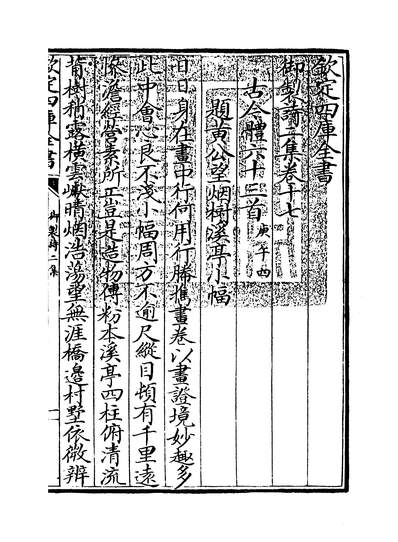 欽定四庫全書
御製詩二集卷十七
古今體六十三首庚午四
題黃公望烟樹溪亭小幅
日日身在畫中行何用行勝攜畫卷以畫證境妙趣多
此中會心良不淺小幅周方不逾尺縱目頓有千里遠
慘澹經營素所正豈是造物傳粉本溪亭四柱俯清流
前樹稍露橫雲巘晴烟浩蕩望無涯橋邊村墅依微辨
欽定四庫全書
御製詩二集